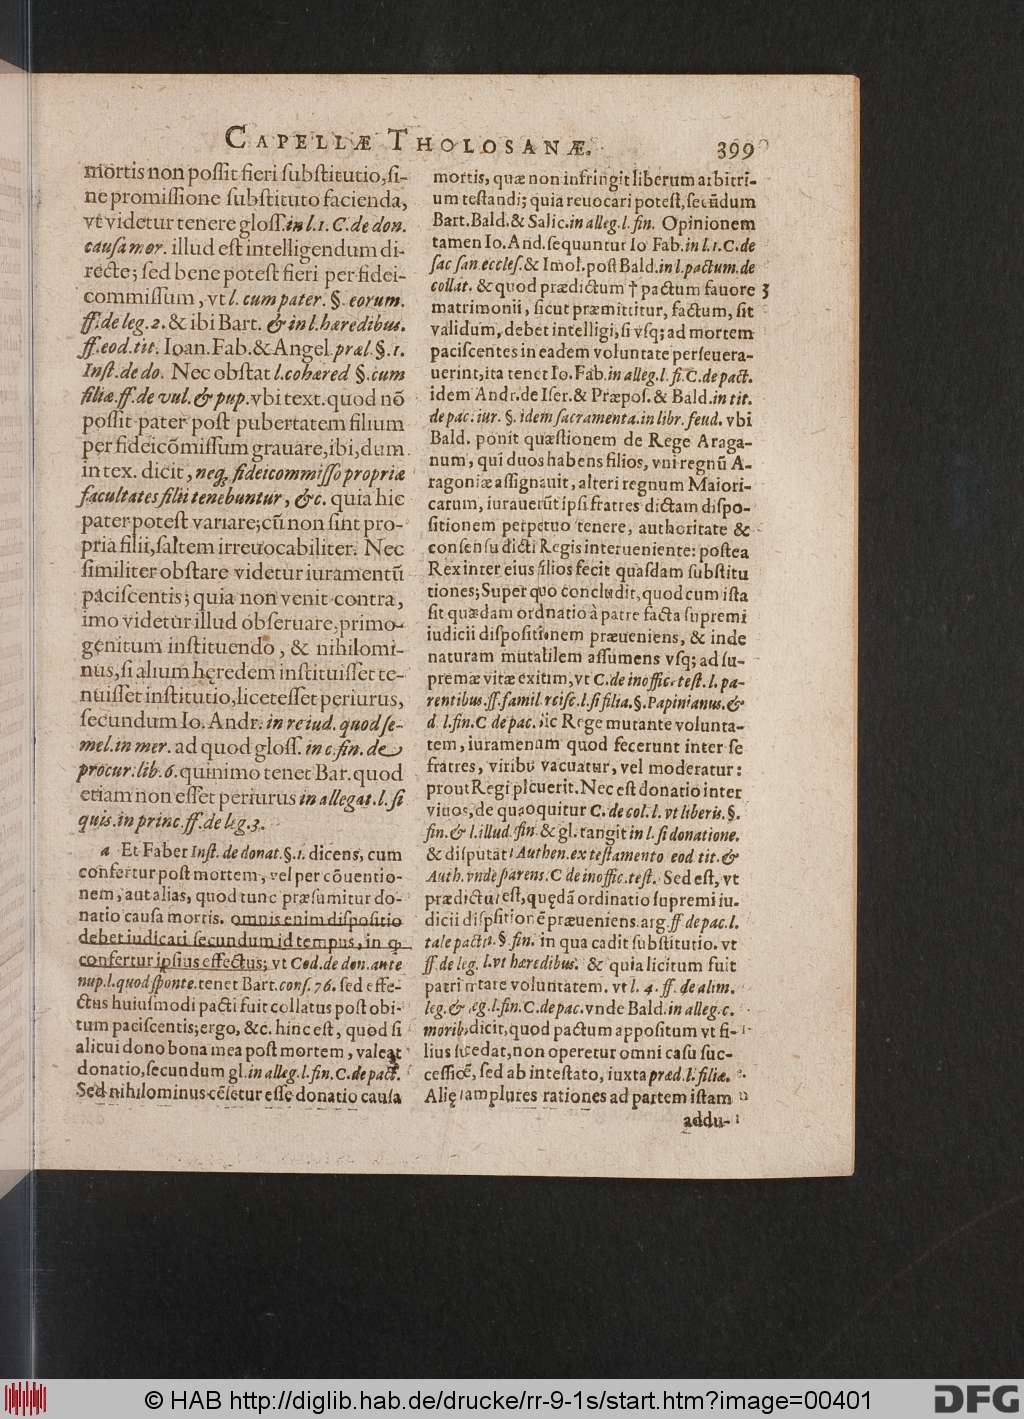 CAPELLÆ THOLOSANÆ. 399
mortis non poſſit fieri ſubſtitutio, ſi-
ne promiſſione ſubſtituto facienda,
vt videtur tenere gloſſ. in l. 1. C. de don.
cauſa mor. illud eſt intelligendum di-
recte; ſed bene poteſt fieri per fidei-
commiſſum, vt l. cum pater. §. eorum.
ff. de leg. 2. & ibi Bart. & in l. hæredibus.
ff. eod. tit. Ioan. Fab. & Angel. præl. §. 1.
Inſt. de do. Nec obſtat l. cohæred §. cum
filiæ. ff. de vul. & pup. vbi text. quod nõ
poſſit pater poſt pubertatem filium
per fideicõmiſſum grauare, ibi, dum
in tex. dicit, neq; fideicommiſſo propriæ
facultates filii tenebuntur, &c. quia hic
pater poteſt variare; cũ non ſint pro-
pria filii, ſaltem irreuocabiliter. Nec
ſimiliter obſtare videtur iuramentũ
paciſcentis; quia non venit contra,
imo videtur illud obſeruare, primo-
genitum inſtituendo, & nihilomi-
nus, ſi alium hęredem inſtituiſſet te-
nuiſſet inſtitutio, licet eſſet periurus,
ſecundum Io. Andr. in re iud. quod ſe-
mel. in mer. ad quod gloſſ. in c. fin. de
procur. lib. 6. quinimo tenet Bar. quod
etiam non eſſet periurus in allegat. l. ſi
quis. in princ. ff. de leg. 3.
a Et Faber Inſt. de donat. §. 1. dicens, cum
confertur poſt mortem, vel per cõuentio-
nem, aut alias, quod tunc præſumitur do-
natio cauſa mortis. omnis enim diſpoſitio
debet iudicari ſecundum id tempus, in q̃
confertur ipſius effectus; vt Cod. de don. ante
nup. l. quod ſponte. tenet Bart. conſ. 76. ſed effe-
ctus huiuſmodi pacti fuit collatus poſt obi-
tum paciſcentis; ergo, &c. hinc eſt, quod ſi
alicui dono bona mea poſt mortem, valeat
donatio, ſecundum gl. in alleg. l. fin. C. de pact.
Sed nihilominus cẽſetur eſſe donatio cauſa
mortis, quæ non infringit liberum arbitri-
um teſtandi; quia reuocari poteſt, ſecũdum
Bart. Bald. & Salic. in alleg. l. fin. Opinionem
tamen Io. And. ſequuntur Io Fab. in l. 1. C. de
ſac ſan eccleſ. & Imol. poſt Bald. in l. pactum. de
collat. & quod prædictum † pactum fauore 3
matrimonii, ſicut præmittitur, factum, ſit
validum, debet intelligi, ſi vſq; ad mortem
paciſcentes in eadem voluntate perſeuera-
uerint, ita tenet Io. Fab. in alleg. l. fi. C. de pact.
idem Andr. de Iſer. & Præpoſ. & Bald. in tit.
de pac. iur. §. idem ſacramenta. in libr. feud. vbi
Bald. ponit quæſtionem de Rege Araga-
num, qui duos habens filios, vni regnũ A-
ragoniæ aſſignauit, alteri regnum Maiori-
carum, iurauerũt ipſi fratres dictam diſpo-
ſitionem perpetuo tenere, authoritate &
conſenſu dicti Regis interueniente: poſtea
Rex inter eius filios fecit quaſdam ſubſtitu
tiones; Super quo concludit, quod cum iſta
ſit quædam ordnatio à patre facta ſupremi
iudicii diſpoſitionem præueniens, & inde
naturam mutalilem aſſumens vſq; ad ſu-
premæ vitæ exitim, vt C. de inoffic. teſt. l. pa-
rentibus. ff. famil. reiſc. l. ſi filia. §. Papinianus. &
d l. fin. C de pac. ſic Rege mutante volunta-
tem, iuramenum quod fecerunt inter ſe
fratres, viribu vacuatur, vel moderatur:
prout Regi plcuerit. Nec eſt donatio inter
viuos, de qua oquitur C. de col. l. vt liberis. §.
fin. & l. illud. fin & gl. tangit in l. ſi donatione.
& diſputat Authen. ex teſtamento eod tit. &
Auth. vnde parens. C de inoffic. teſt. Sed eſt, vt
prædictu eſt, quędã ordinatio ſupremi iu.
dicii diſpſitionẽ præueniens. arg. ff. de pac. l.
tale pactũ. §. fin. in qua cadit ſubſtitutio. vt
ff. de leg. l. vt hæredibus. & quia licitum fuit
patri mtare voluntatem. vt l. 4. ff. de alim.
leg. & leg. l. fin. C. de pac. vnde Bald. in alleg. c.
morib. dicit, quod pactum appoſitum vt fi-
lius ſucedat, non operetur omni caſu ſuc-
ceſſioẽ, ſed ab inteſtato, iuxta præd. l. filiæ.
Alię tamplures rationes ad partem iſtam
addu-
© HAB http://diglib.hab.de/drucke/rr-9-1s/start.htm?image=00401 DFG